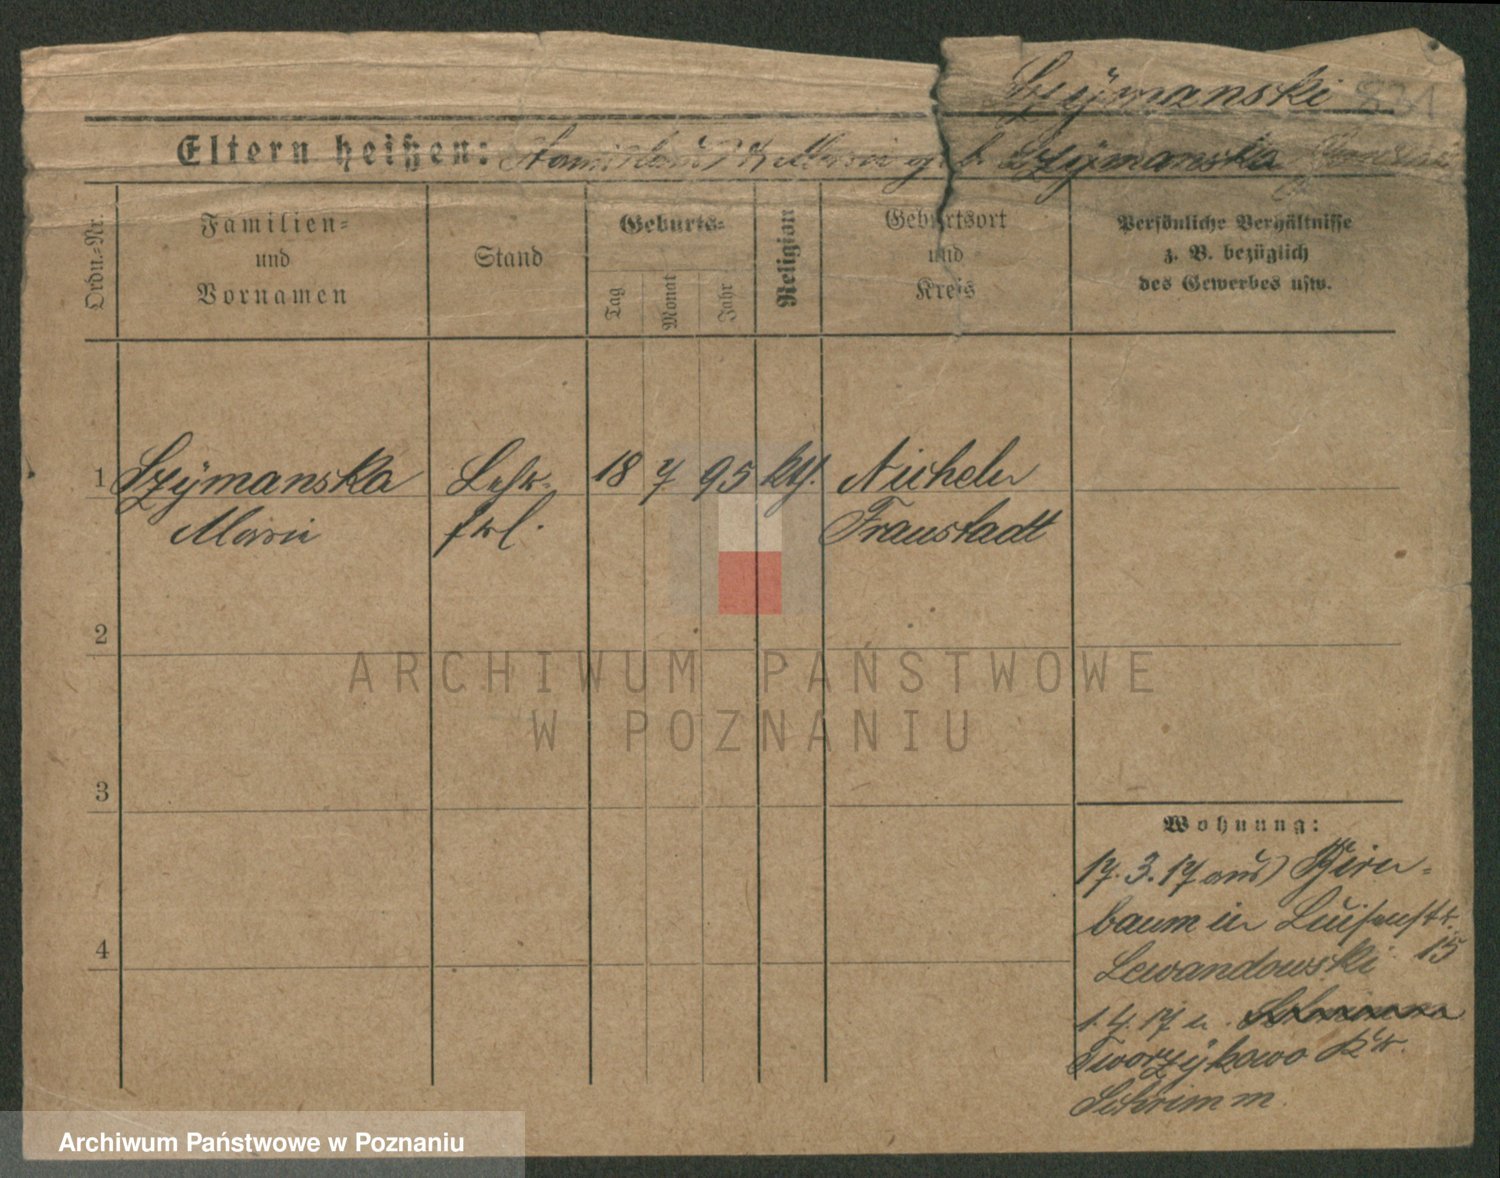 Szÿmanski 831
Eltern heißen: Stanislaus u. Maria geb. Szÿmanska
Ordn.-Nr.
Familien-
und
Vornamen
Stand
Geburts-
Tag
Monat
Jahr
Religion
Geburtsort
und
Kreis
Persönliche Verhältnisse
z. B. bezüglich
des Gewerbes usw.
1 Szÿmanska Lehr- 18 7 95 kth. Nicheln
Maria frl. Fraustadt
2
3
4
Wohnung:
17.3.17 aus Birn-
baum in Luisenstr.
Lewandowski 15
1.4.17 n.
Tworzÿkowo Kr.
Schrimm
ARCHIWUM PAŃSTWOWE
W POZNANIU
Archiwum Państwowe w Poznaniu